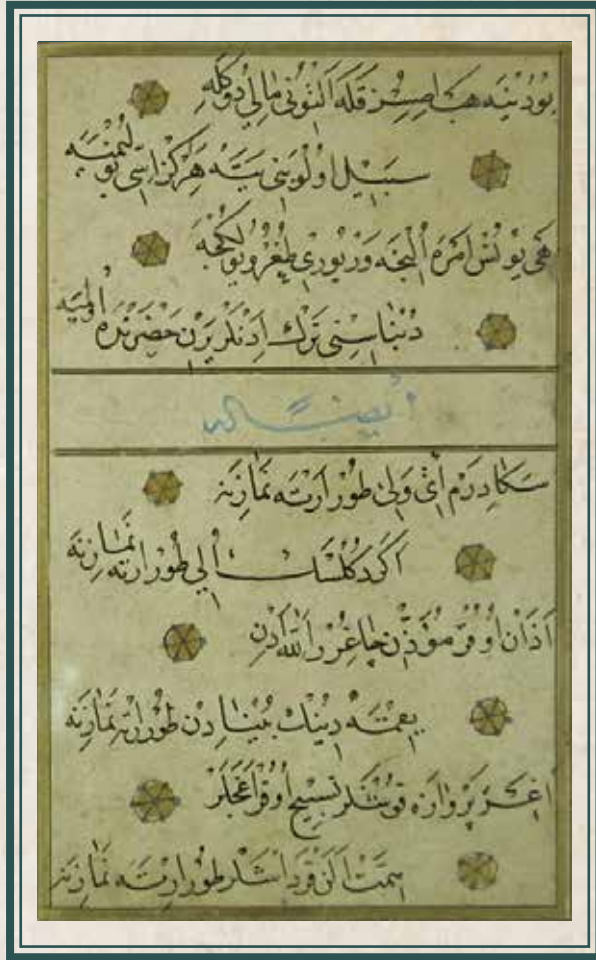 بُودُنْيَه هَپْ اِصِسِزْ قَلَه اَلْتُونِى مَالِى دُوكَلِه
سَبِيلْ اُولَوُبَنِى يَتَه هَرْكَزْ اِسِّى بُولُنْمَيَه
هَىْ يُونُسْ اَمْرَه اُلِنْجَه وَرْ يُورِى طُغْرُو يُولُكْجَه
دُنْيَاسِنِى تَرْكْ اِدَنْلَرْ يَرِنْ حَضْرَتْدَه اُولَمَيَه
أيضًا له
سَكَا دِرَمْ أَىْ وَلِى طُورْ اِرْتَه نَمَازِنَه
اَكَرْ دَكُلْسَكْ أُلِى طُورْ اِرْتَه نَمَازِنَه
اَذَانْ اُوقُرْ مُؤَذِّنْ چَاغِرُرْ اَللّٰه اَدِنْ
يِقْمَه دِينِكْ بُنْيَادِنْ طُورْ اِرْتَه نَمَازِنَه
اَغَرْ پَرْوَازَه قُوشْلَرْ تَسْبِيحْ اُوقُرْ اَغَجْلَرْ
هِمَّتْ اَلَنْ قَرْدَاشْلَرْ طُورْ اِرْتَه نَمَازِنَه